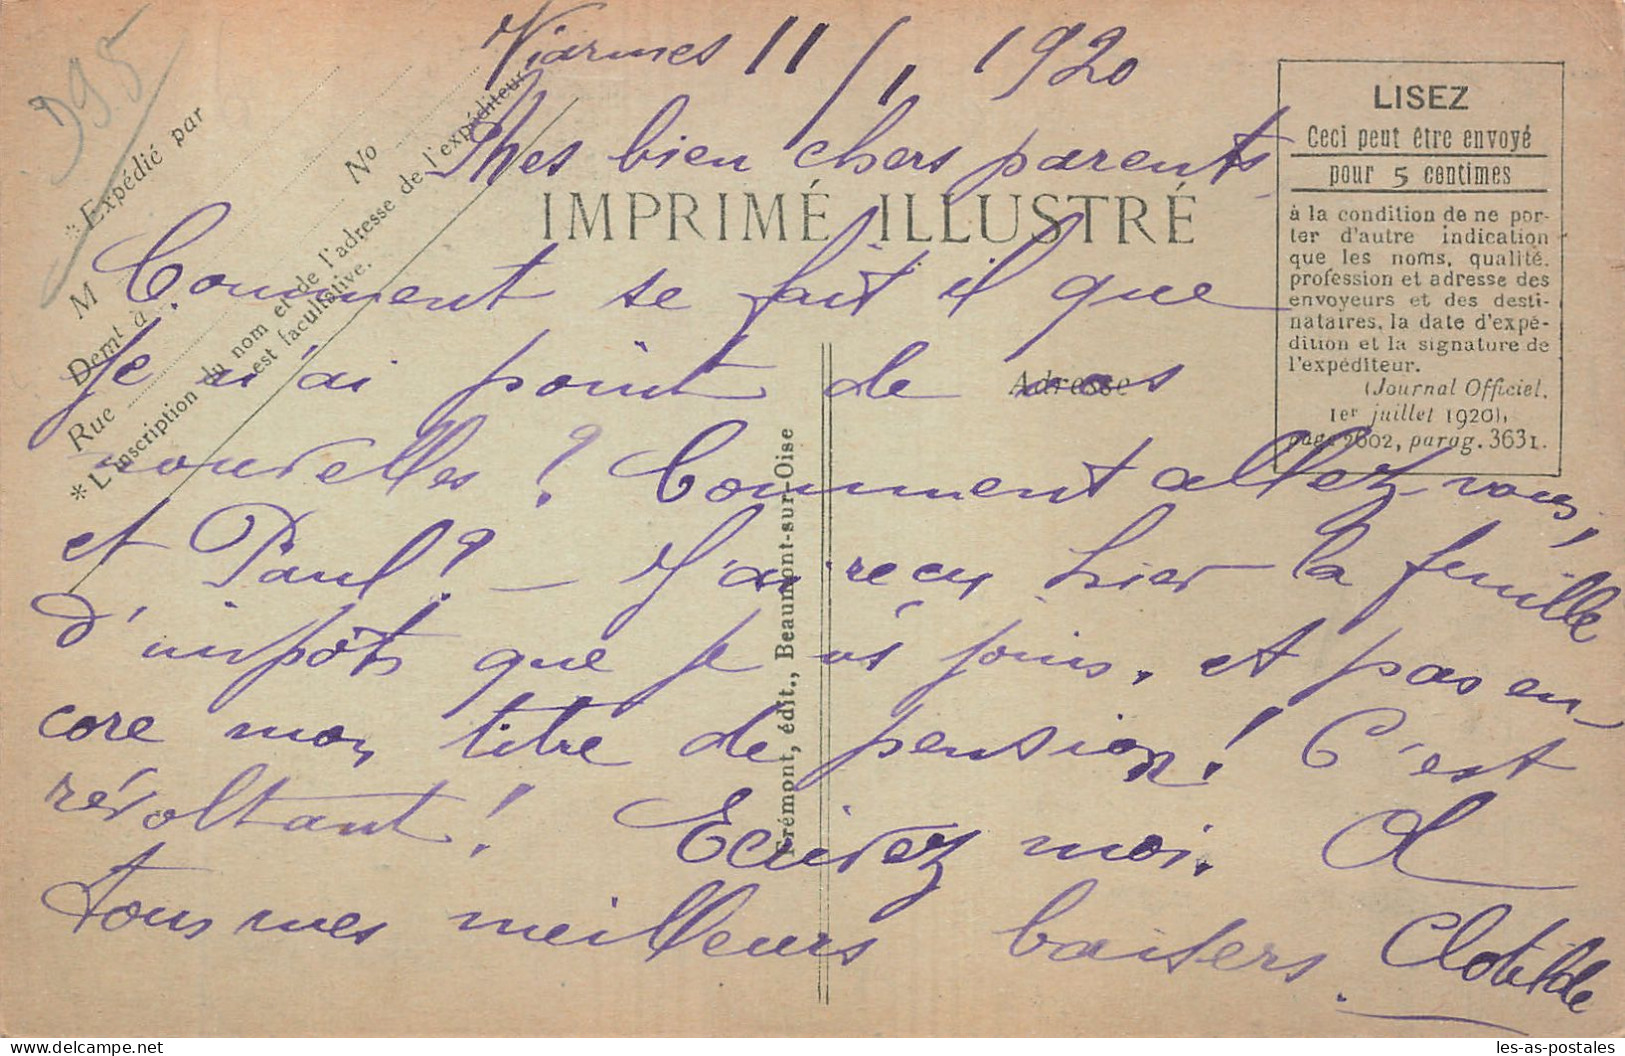 D95
Viarmes 11/1 1920
Mes bien chers parents
Comment se fait il que
je n'ai point de vos
nouvelles ? Comment allez-vous,
et Paul ? – J'ai recu hier la feuille
d'impôts que je vs joins, et pas en-
core mon titre de pension ! C'est
révoltant ! Ecrivez moi. A
tous mes meilleurs baisers. Clotilde
IMPRIMÉ ILLUSTRÉ
Adresse
* Expédié par
M
No
Demt à
Rue
* L'inscription du nom et de l'adresse de l'expéditeur
est facultative.
Frémont, édit., Beaumont-sur-Oise
LISEZ
Ceci peut être envoyé
pour 5 centimes
à la condition de ne por-
ter d'autre indication
que les noms, qualité,
profession et adresse des
envoyeurs et des desti-
nataires, la date d'expé-
dition et la signature de
l'expéditeur.
(Journal Officiel,
1er juillet 1920),
page 2602, parog. 3631.
les-as-postales